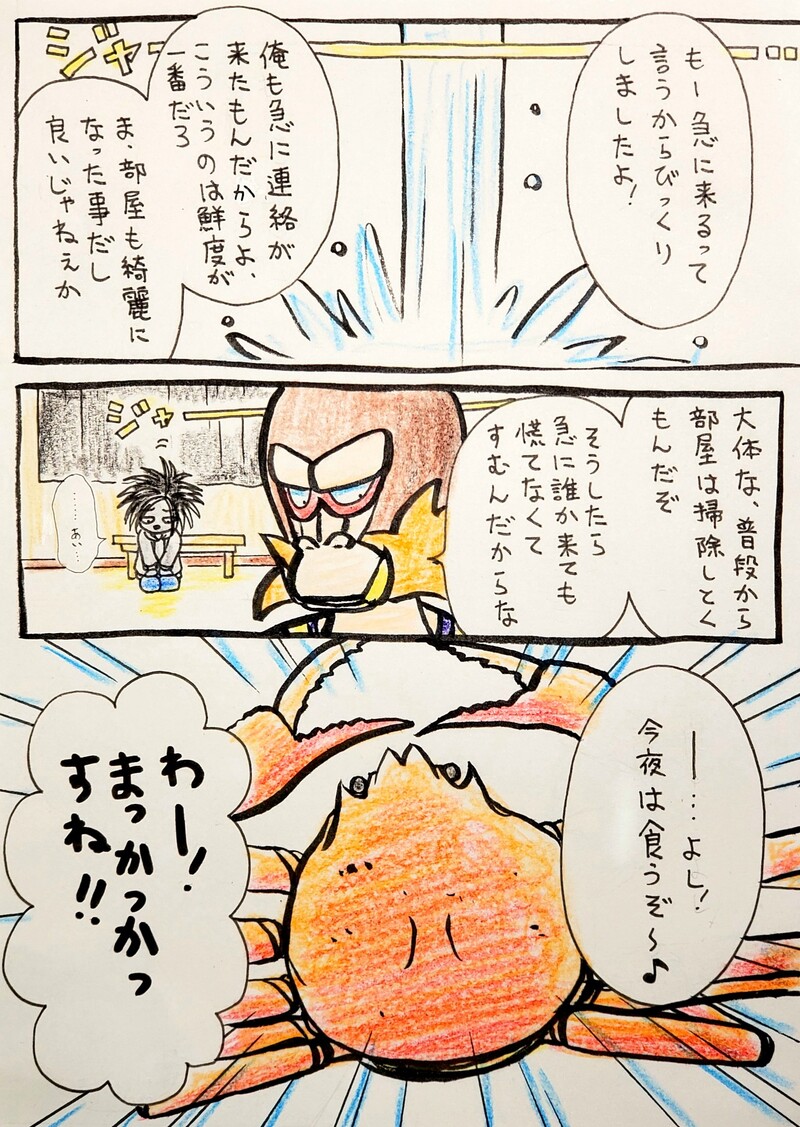 もー急に来るって
言うからびっくり
しましたよ!
ジャー
俺も急に連絡が
来たもんだからよ、
こういうのは鮮度が
一番だろ
ま、部屋も綺麗に
なった事だし
良いじゃねぇか
大体な、普段から
部屋は掃除しとく
もんだぞ
そうしたら
急に誰か来ても
慌てなくて
すむんだからな
ジャー
……あい…
ー…よし!
今夜は食うぞ〜♪
わー!
まっかっかっ
すね!!